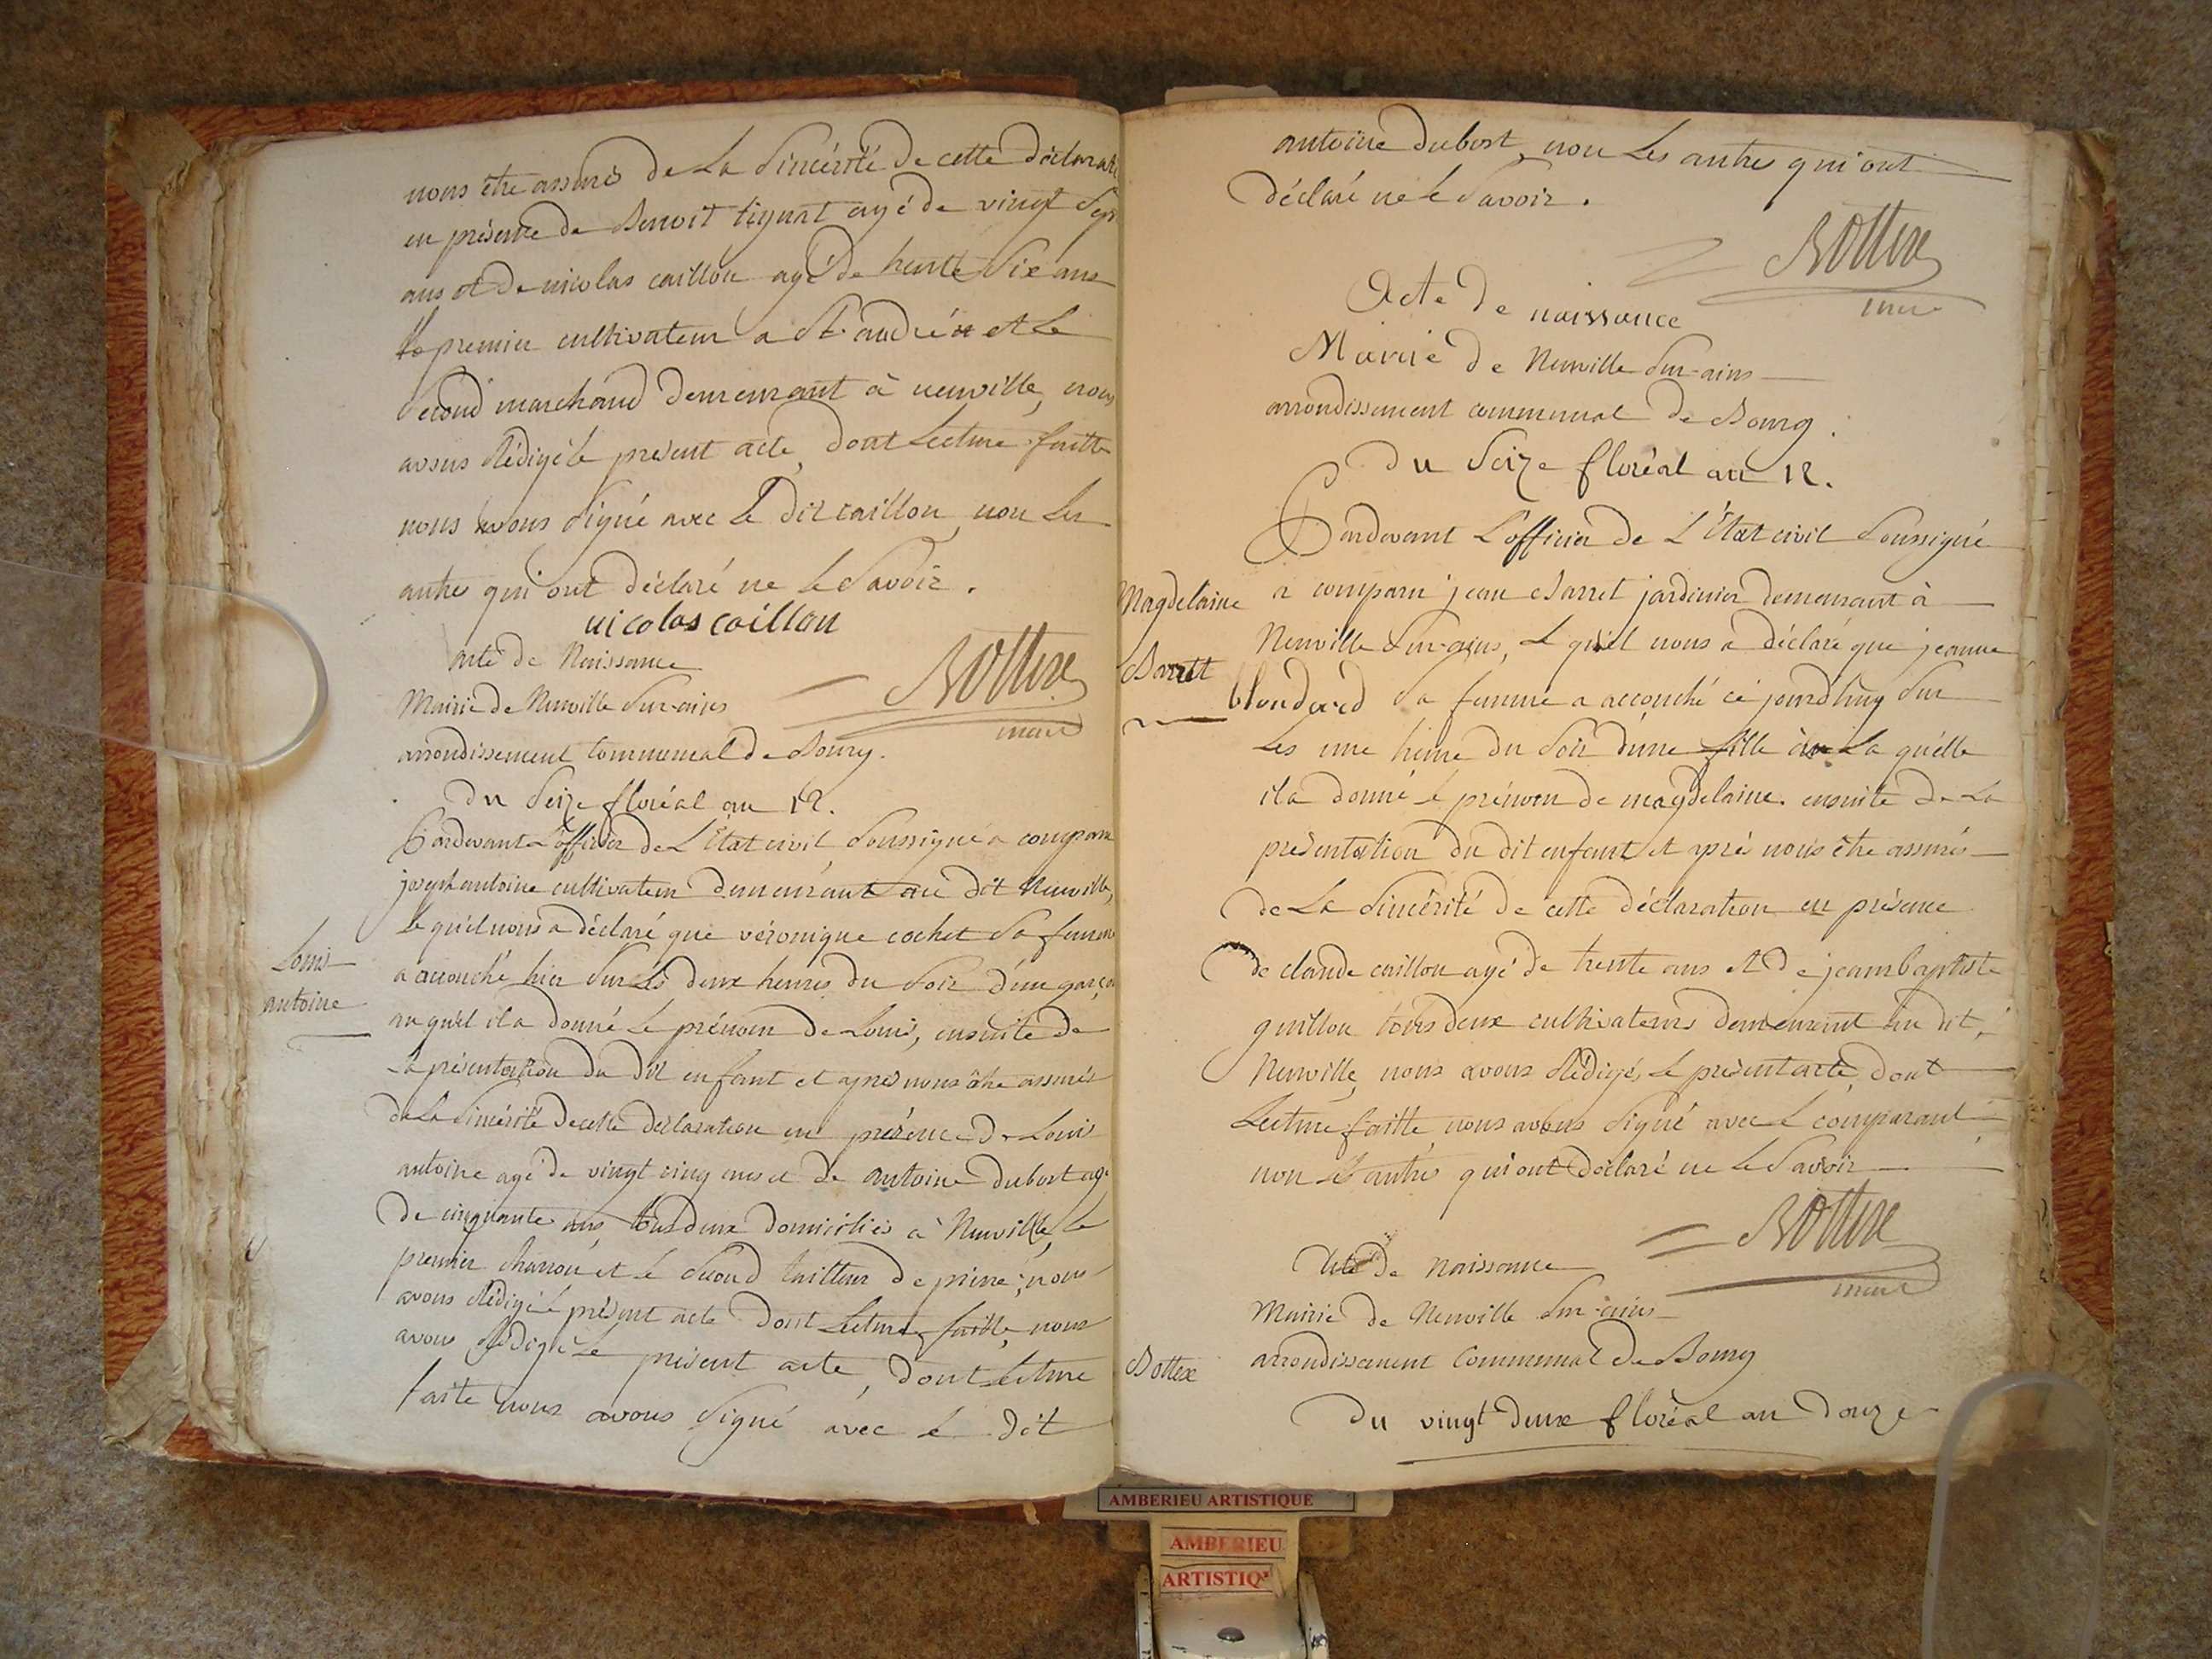 nous être assurés de La Sincérité de cette déclarat
en présence de Benoit tignat agé de vingt Sept
ans et de nicolas caillou agé de trente Six ans
Le premier cultivateur a St. andré et Le
Second marchand demeurant à neuville, nous
avons Rédigé le present acte, dont Lecture faitte
nous avons Signé avec Le dit caillou, non Les
autre qui ont déclaré ne Le Savoir.
nicolas caillou
acte de Naissance
Bottex
maire
Mairie de Neuville Sur-ains
arrondissement Communal de Bourg.
du Seize floréal an 12.
Pardevant L'officier de L'Etat civil Soussigné a comparu
joseph antoine cultivateur demeurant au dit Neuville,
Le quel nous a déclaré que véronique cochet Sa femme
Louis
antoine
a accouché hier Sur Les deux heures du Soir d'un garçon
au quel il a donné Le prénom de Louis, ensuite de
La présentation du dit enfant et après nous être assurés
de La Sincérité de cette déclaration en présence de Louis
antoine agé de vingt cinq ans et de antoine dubost agé
de cinquante ans, tous deux domiciliés à Neuville, Le
premier charron et Le Second tailleur de pierre, nous
avons Rédigé le présent acte dont Lecture faitte, nous
avons Rédigé Le présent acte, dont Lecture
faite nous avons Signé avec Le dit
antoine dubost, non Les autres qui ont
déclaré ne Le Savoir.
Bottex
maire
Acte de naissance
Mairie de Neuville Sur-ains
arrondissement communal de Bourg.
du Seize floréal an 12.
Pardevant L'officier de L'Etat civil Soussigné
Magdelaine
Barrett
a comparu jean Barret jardinier demeurant à
Neuville Sur-ains, Le quel nous a déclaré que jeanne
blondard Sa femme a accouché ce jourdhuy Sur
Les une heure du Soir d'une fille à La quelle
il a donné Le prénom de magdelaine. ensuite de La
présentation du dit enfant et apré nous être assurés
de La Sincérité de cette déclaration en présence
de claude caillou agé de trente ans et de jean baptiste
guillon tous deux cultivateurs demeurant au dit
Neuville, nous avons Rédigé Le present acte, dont
Lecture faitte nous avons Signé avec Le comparant
non Les autre qui ont déclaré ne Le Savoir
Bottex
maire
Acte de Naissance
Mairie de Neuville Sur-ains
Bottex
arrondissement Communal de Bourg
du vingt deux floréal an douze
AMBERIEU ARTISTIQUE
AMBERIEU
ARTISTIQ